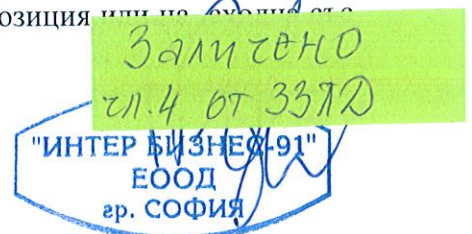 озиция или на сходна със
Заличено
чл.4 от ЗЗЛД
"ИНТЕР БИЗНЕС-91"
ЕООД
гр. СОФИЯ